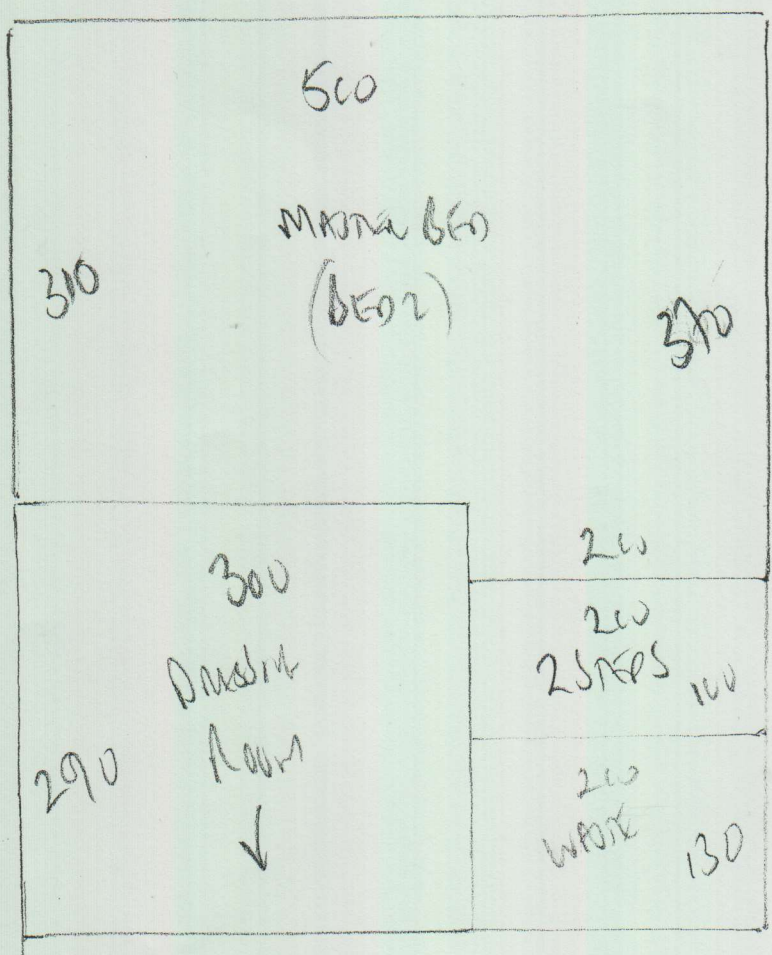 500
MASTER BED
(BED 2)
310
370
200
300
DRESSING
ROOM
290
200
2 STEPS
100
200
WASTE
130